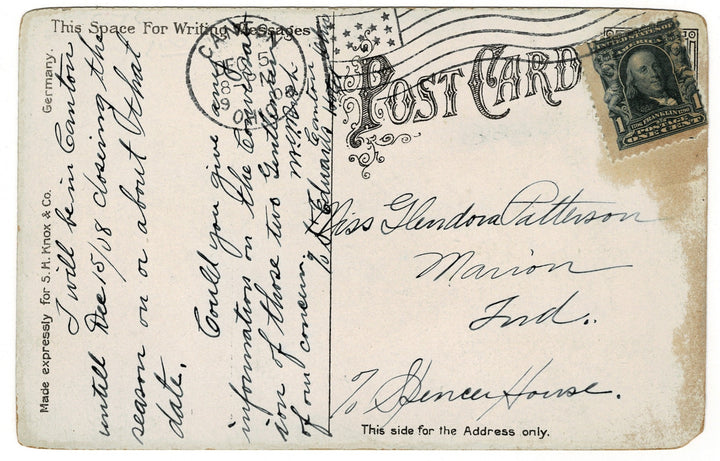 This Space For Writing Messages
POST CARD
Germany.
Made expressly for S. H. Knox & Co.
I will be in Canton
untill Dec 15/08 closeing the
season on or about that
date.
Could you give any
information on the Conversa
sion of those two Gentlemen
of our concern.
Edwards
Canton
CAN
DEC 5
8
190
UNITED STATES OF AMERICA
1706 FRANKLIN 1790
1 POSTAGE 1
ONE CENT
Miss Glendora Patterson
Marion
Ind.
% Spencer House.
This side for the Address only.